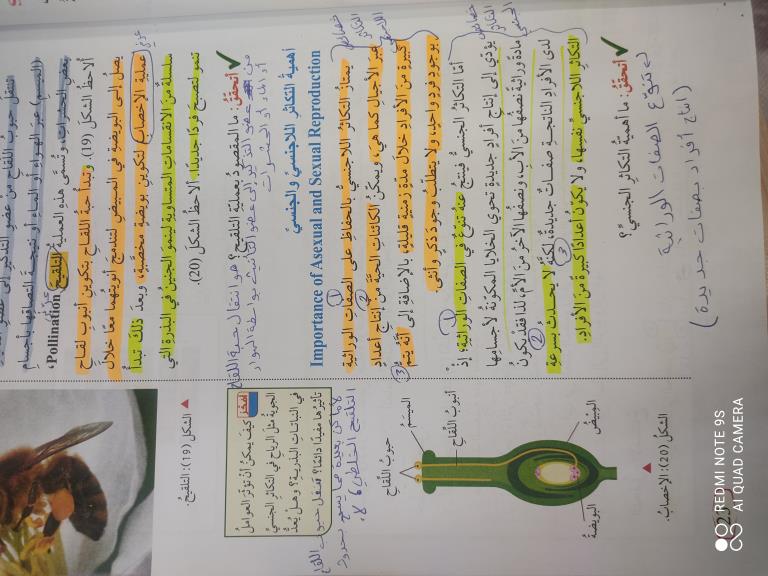 تنتقل حبوب اللقاح من عضو التذكير إلى عضو
(الميسم) عبر الهواء أو الماء أو نتيجة التصاقها بأجسام
بعض الحشرات، وتُسمّى هذه العملية التلقيح
Pollination،
يصلُ إلى البويضة في المبيض لتندمج أنويتهما معًا خلال
عملية الإخصاب لتكوين بويضة مخصبة، وبعد ذلك تبدأ
سلسلة من الانقسامات المتساوية لينمو الجنين في البذرة التي
تنمو لتصبح فردًا جديدًا. ألاحظُ الشكل (20).
ألاحظُ الشكل (19) وتبدأ حبة اللقاح بتكوين أنبوب لقاح
✓ أتحقّقُ: ما المقصود بعملية التلقيح؟
هو انتقال حبة اللقاح
من عضو التذكير إلى عضو التأنيث بواسطة الهواء
أو الماء أو الحشرات
أهمية التكاثر اللاجنسي والجنسي
Importance of Asexual and Sexual Reproduction
يمتازُ التكاثر اللاجنسي بالحفاظ على الصفات الوراثية
عبر الأجيال كما هي، ويمكنُ الكائنات الحية من إنتاج أعداد
كبيرة من الأفراد خلال مدة زمنية قليلة، بالإضافة إلى أنه يتم
بوجود فرد واحد، ولا يتطلب وجود ذكر وأنثى.
أما التكاثر الجنسي فينتج عنه تنوع في الصفات الوراثية؛ إذ
يؤدي إلى إنتاج أفراد جديدة تحوي الخلايا المكونة لأجسامها
مادة وراثية نصفها من الأب، ونصفها الآخر من الأم، لذا فقد يكون
لدى الأفراد الناتجة صفات جديدة، لكنه لا يحدث بسرعة
التكاثر اللاجنسي نفسها، ولا يكون أعدادًا كبيرة من الأفراد.
✓ أتحقّقُ: ما أهمية التكاثر الجنسي؟
تنوع الصفات الوراثية
(انتاج أفراد بصفات جديدة)
▲ الشكل (19): التلقيح.
أفكر
كيف يمكن أن تؤثر العوامل
الجوية مثل الرياح في التكاثر الجنسي
في النباتات البذرية؟ وهل يُعدُّ
تأثيرها مفيدًا دائمًا؟
حبوب اللقاح
الميسم
أنبوب اللقاح
المبيض
البويضة
▲ الشكل (20): الإخصاب.
REDMI NOTE 9S
AI QUAD CAMERA